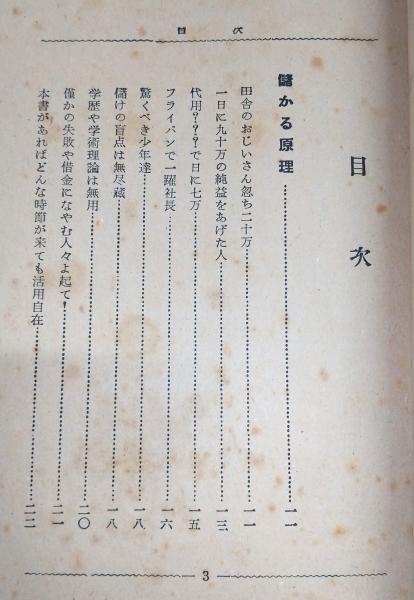 目次
目次
儲かる原理……一一
田舎のおじいさん忽ち二十万……一一
一日に九十万の純益をあげた人……一三
代用???で日に七万……一五
フライパンで一躍社長……一六
驚くべき少年達……一八
儲けの盲点は無尽蔵……一八
学歴や学術理論は無用……二〇
僅かの失敗や借金になやむ人々よ起て!……二一
本書があればどんな時節が来ても活用自在……二二
3